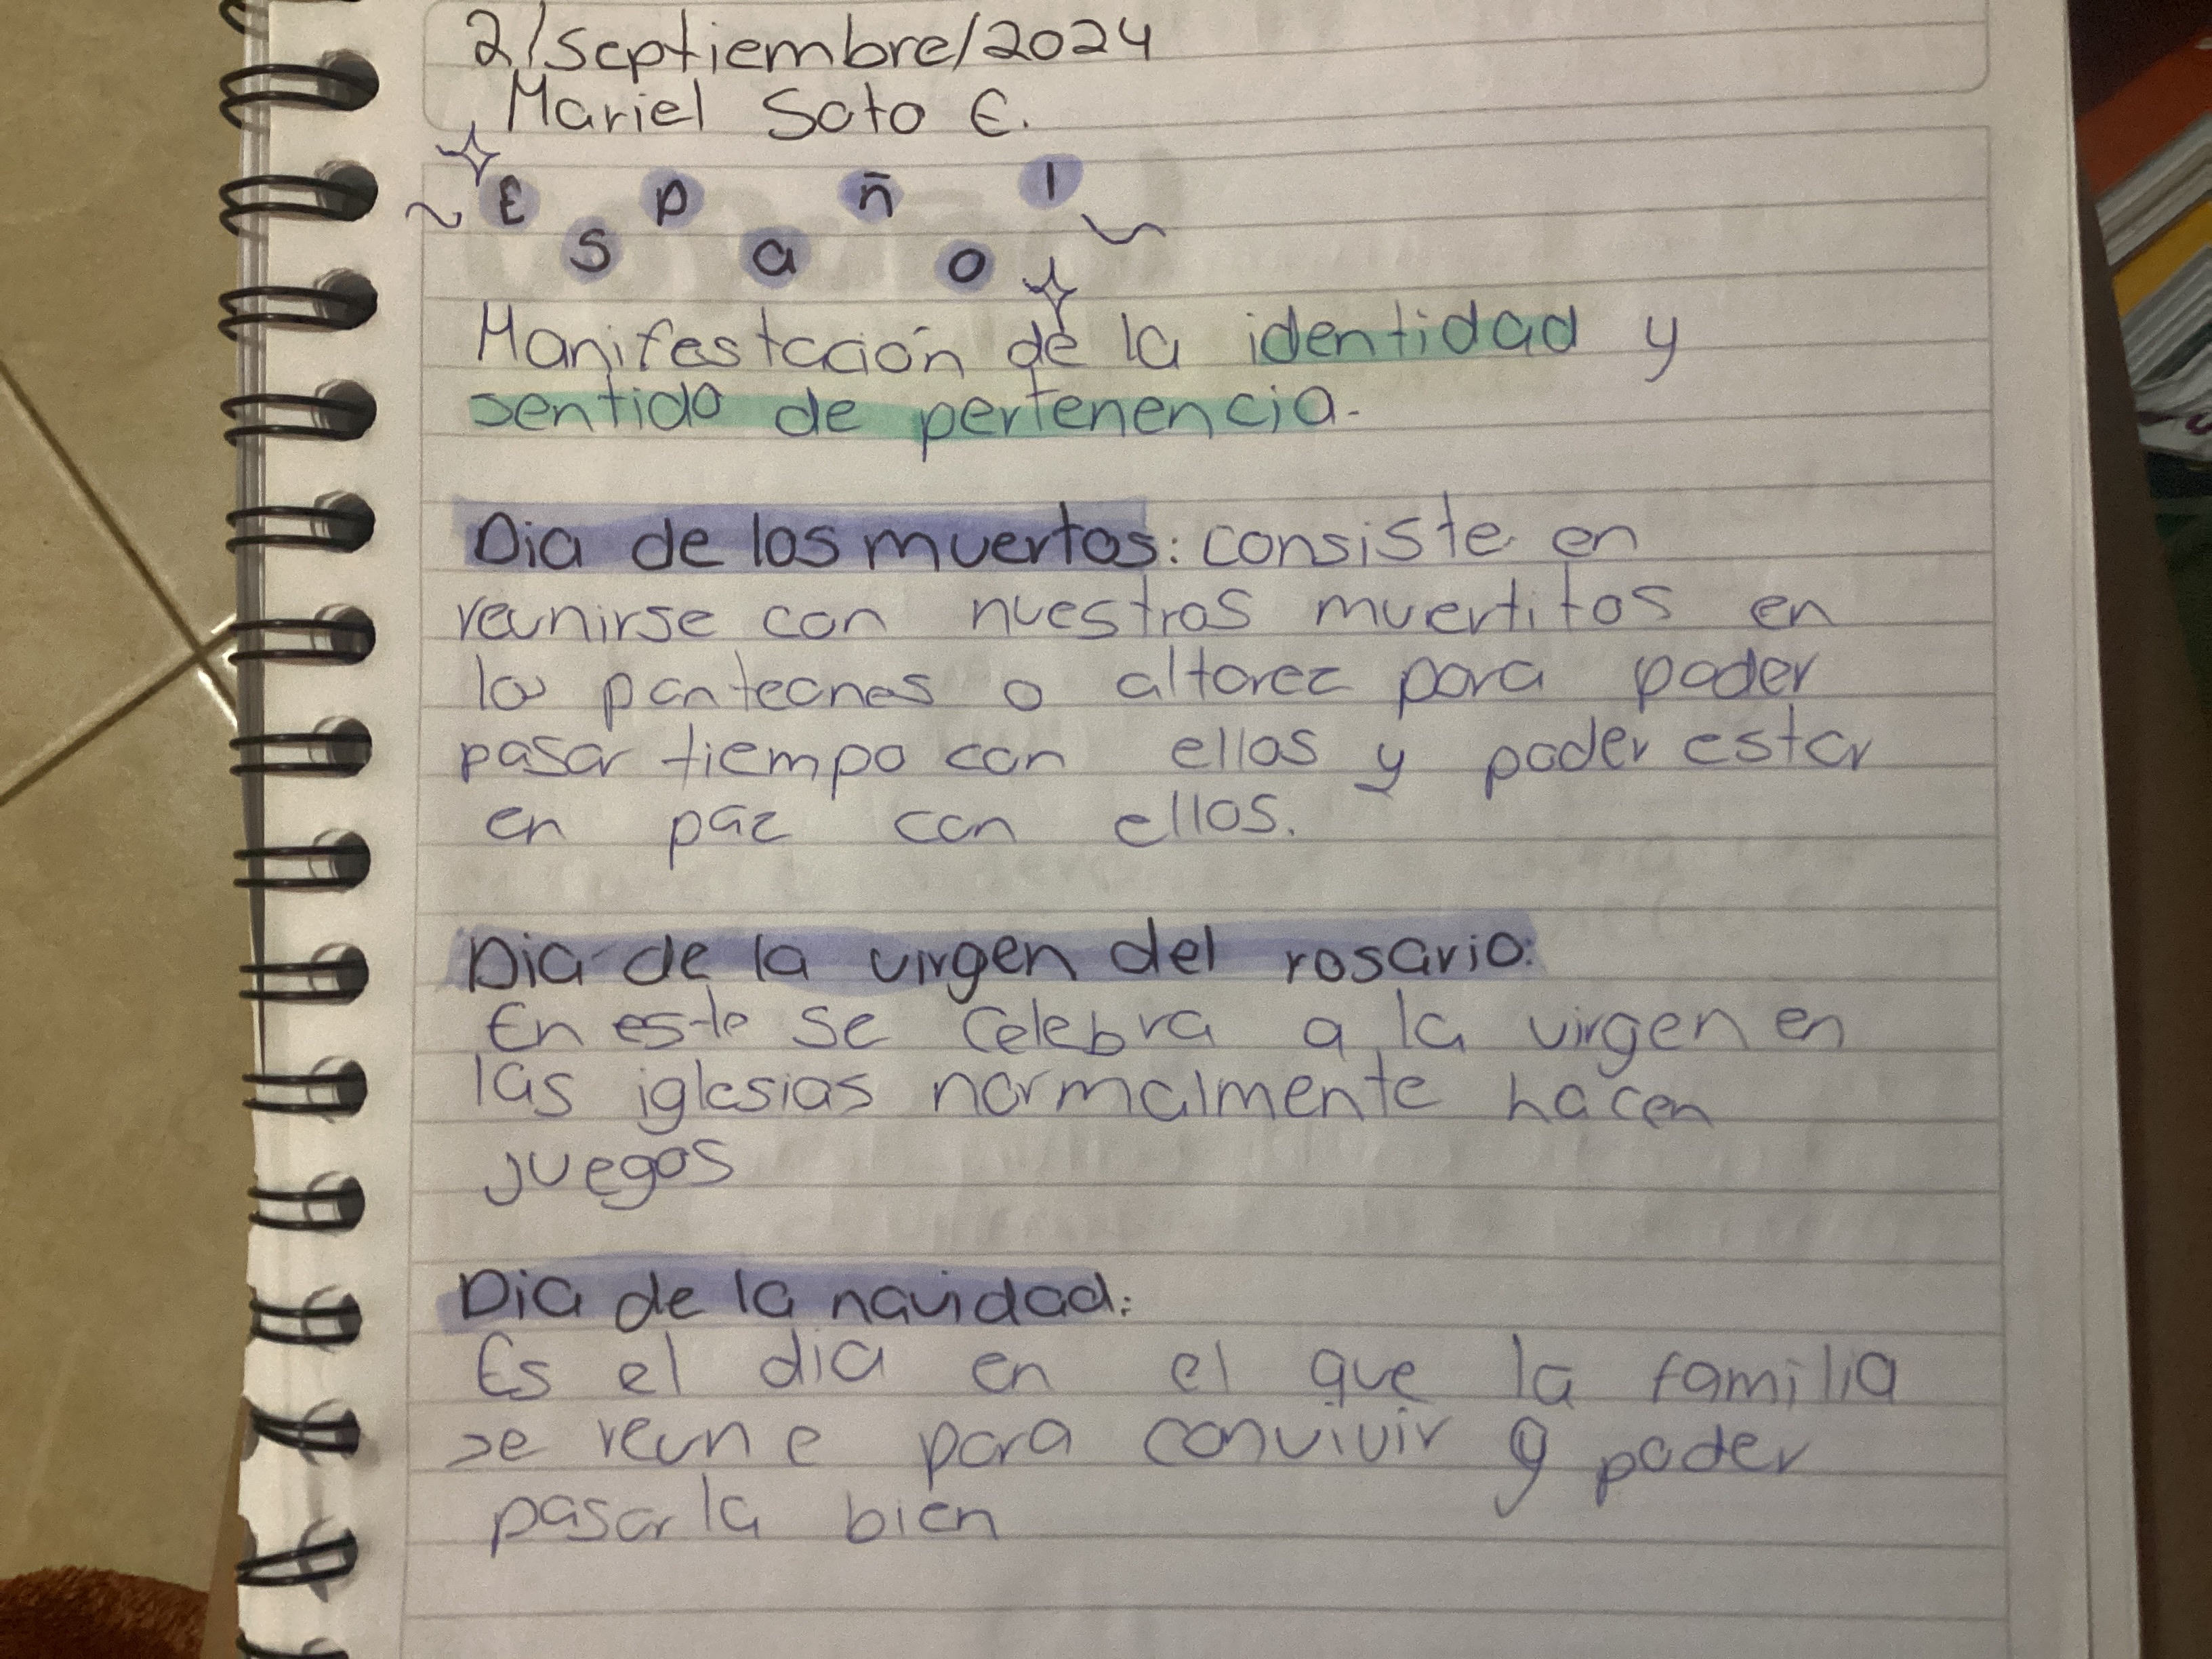 2/Septiembre/2024
Mariel Soto E.
Español
Manifestación de la identidad y
sentido de pertenencia.
Dia de los muertos: consiste en
reunirse con nuestros muertitos en
los panteones o altarez para poder
pasar tiempo con ellos y poder estar
en paz con ellos.
Dia de la virgen del rosario:
En este se celebra a la virgen en
las iglesias normalmente hacen
juegos
Dia de la navidad:
Es el dia en el que la familia
se reune para convivir y poder
pasarla bien